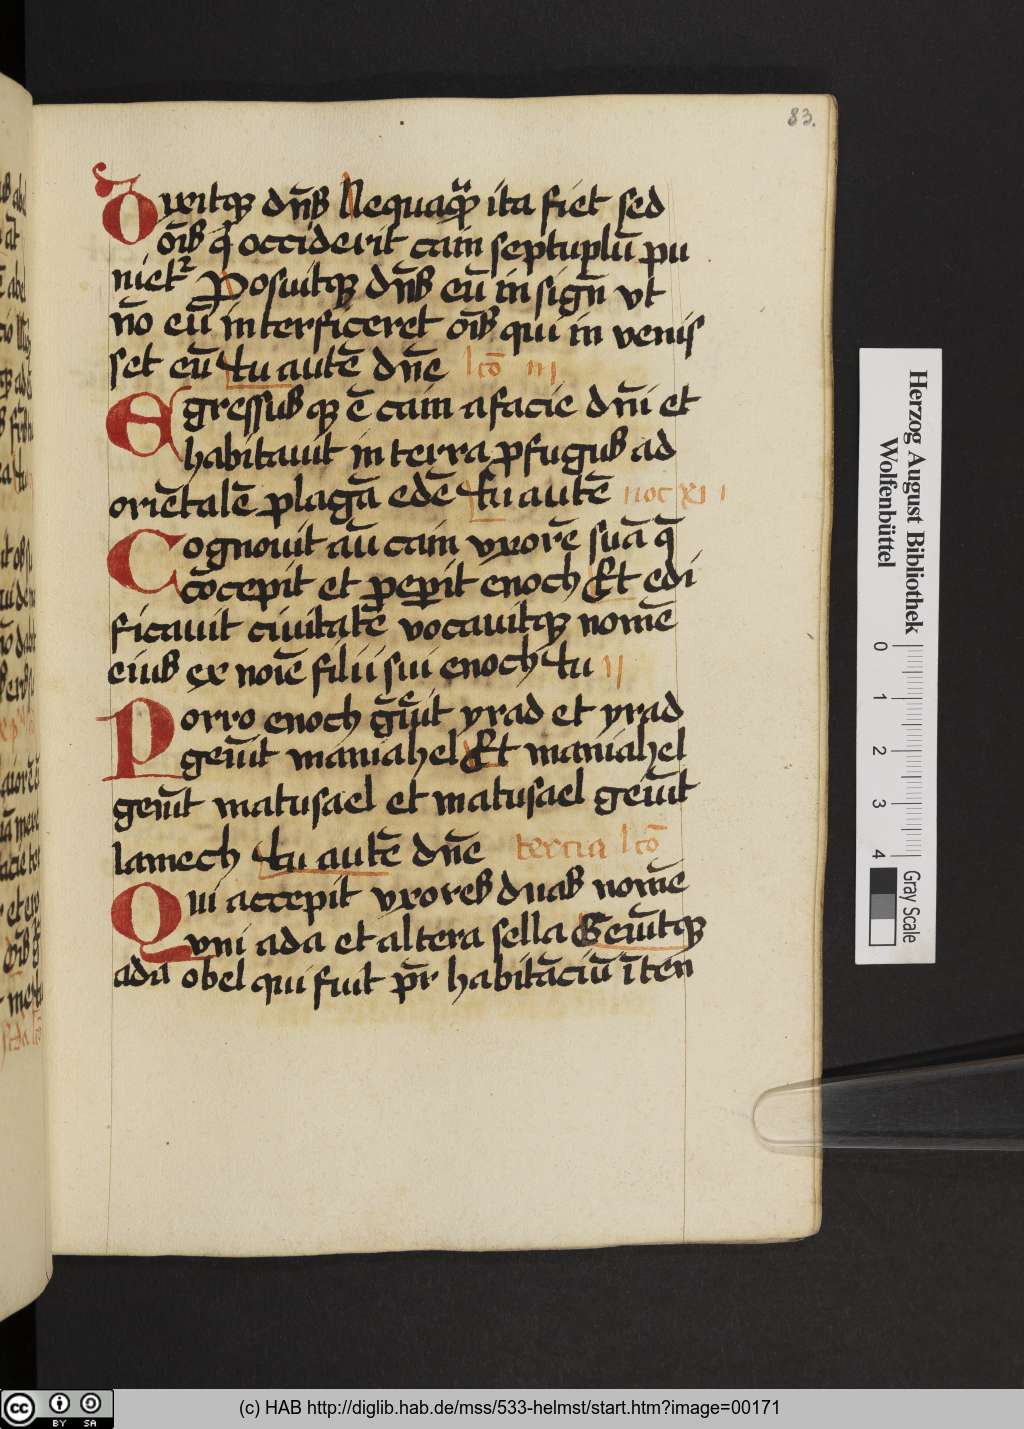 83.
Dixitqꝫ dn̄s Nequaqͣꝫ ita fiet sed
om̄is qͥ occiderit cain septuplū pu
nietᷣ Posuitqꝫ dn̄s eū in sign̄ vt
nō eū interficeret om̄is qui in venis
set eū tu autē dn̄e lcō iii
Egressusqꝫ ē cain a facie dn̄i et
habitauit in terra ꝓfugus ad
oriētalē plagā edē tu autē noc xi i
Cognouit aū cain vxorē suā q̄
cōcepit et peꝑit enoch Et edi
ficauit ciuitatē vocauitqꝫ nomē
eius ex noīe filii sui enoch tu ii
Porro enoch genuit yrad et yrad
genūit maniahel Et maniahel
genūit matusael et matusael genūit
lamech tu autē dn̄e tercia lcō
Qui accepit vxores duas nomē
vni ada et altera sella Genūitqꝫ
ada obel qui fuit pr̄ habitāciū ī ten
Herzog August Bibliothek
Wolfenbüttel
0 1 2 3 4
Gray Scale
cc BY SA
(c) HAB http://diglib.hab.de/mss/533-helmst/start.htm?image=00171